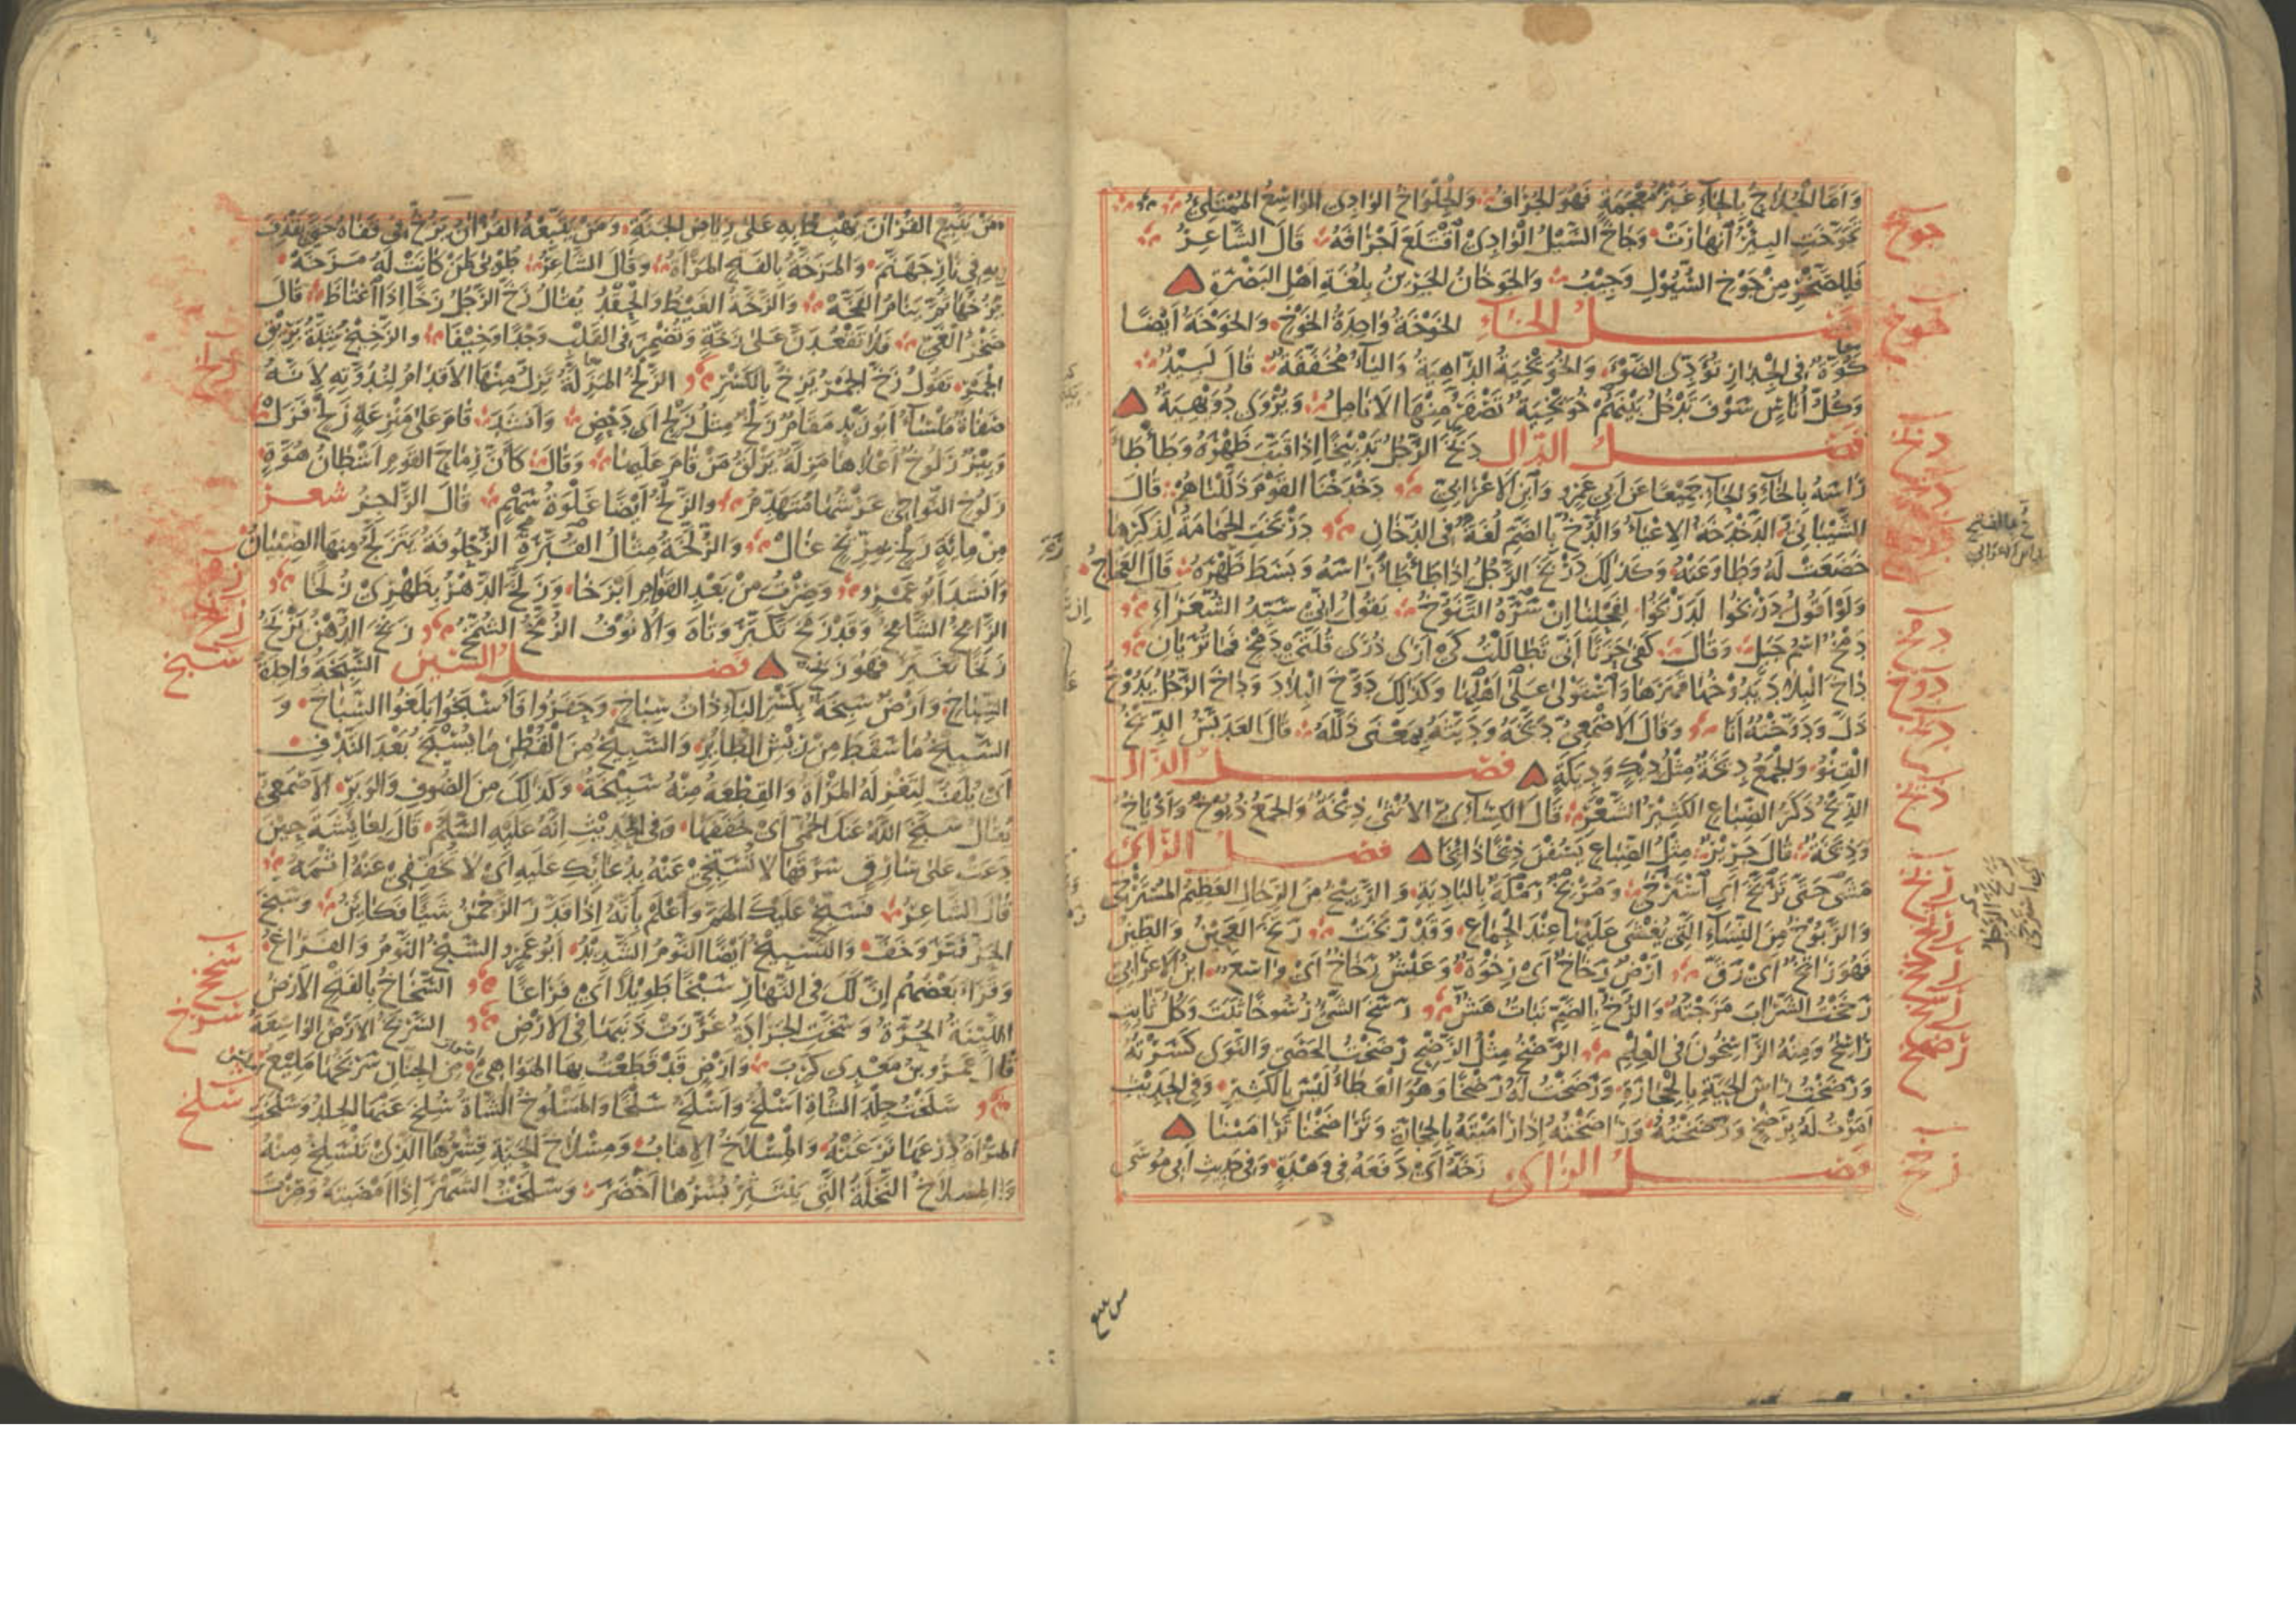 وَأَمَّا الجُلَاحُ بِالحَاءِ غَيْرَ مُعْجَمَةٍ فَهُوَ الجُرَافُ وَالجِلْوَاخُ الوَادِى الوَاسِعُ المُمْتَلِئُ
تَجَوَّخَتِ البِئْرُ انْهَارَتْ وَجَاخَ السَّيْلُ الْوَادِىَ اقْتَلَعَ أَجْرَافَهُ قَالَ الشَّاعِرُ
فَلِلصَّخْرِ مِنْ جَوْخِ السُّيُولِ وَجِيبُ وَالجَوْخَانُ الجَرِينُ بِلُغَةِ أَهْلِ البَصْرَةِ
فصل الخاء الخَوْخَةُ وَاحِدَةُ الخَوْخِ وَالخَوْخَةُ أَيْضًا
كُوَّةٌ فِى الْجِدَارِ تُؤَدِّى الضَّوْءَ وَالخُوَيْخِيَةُ الدَّاهِيَةُ وَاليَاءُ مُخَفَّفَةٌ قَالَ لَبِيدٌ
وَكُلُّ أُنَاسٍ سَوْفَ تَدْخُلُ بَيْنَهُمْ خُوَيْخِيَةٌ تَصْفَرُّ مِنْهَا الأَنَامِلُ وَيُرْوَى دُوَيْهِيَةٌ
فصل الدال دَبَّخَ الرَّجُلُ تَدْبِيخًا إِذَا قَبَّبَ ظَهْرَهُ وَطَأْطَأَ
رَأْسَهُ بِالخَاءِ وَالحَاءِ جَمِيعًا عَنْ أَبِي عَمْرٍو وَابْنِ الأَعْرَابِيِّ دَخْدَخْنَا القَوْمَ ذَلَّلْنَاهُمْ قَالَ
الشَّيْبَانِيُّ الدَّخْدَخَةُ الإِعْيَاءُ وَالدُّخُّ بِالضَّمِّ لُغَةٌ فِى الدُّخَانِ دَرْبَخَتِ الحَمَامَةُ لِذَكَرِهَا
خَضَعَتْ لَهُ وَطَاوَعَتْهُ وَكَذٰلِكَ دَرْبَخَ الرَّجُلُ إِذَا طَأْطَأَ رَأْسَهُ وَبَسَطَ ظَهْرَهُ قَالَ العَجَّاجُ
وَلَوْ أَقُولُ دَرْبِخُوا لَدَرْبَخُوا لِفَحْلِنَا إِنْ سَرَّهُ التَّنَوُّخُ يَقُولُ إِنِّى سَيِّدُ الشُّعَرَاءِ
دَمْخٌ اسْمُ جَبَلٍ وَقَالَ كَفَى حَزَنًا أَنِّى تَطَالَلْتُ كَىْ أَرَى ذُرَى قُلَّتَىْ دَمْخٍ فَمَا تُرَيَانِ
دَاخَ الْبِلَادَ يَدُوخُهَا قَهَرَهَا وَاسْتَوْلَى عَلَى أَهْلِهَا وَكَذٰلِكَ دَوَّخَ الْبِلَادَ وَدَاخَ الرَّجُلُ يَدُوخُ
ذَلَّ وَدَوَّخْتُهُ أَنَا وَقَالَ الأَصْمَعِىُّ دَيَّخَهُ وَدَيَّثَهُ بِمَعْنَى ذَلَّلَهُ قَالَ العَدَبَّسُ الدِّيخُ
القِنْوُ وَالجَمْعُ دِيَخَةٌ مِثْلُ دِيكٍ وَدِيَكَةٍ فصل الذال
الذِّيخُ ذَكَرُ الضِّبَاعِ الكَثِيرُ الشَّعْرِ قَالَ الكِسَائِىُّ الأُنْثَى ذِيخَةٌ وَالجَمْعُ ذُيُوخٌ وَأَذْيَاخٌ
وَذِيَخَةٌ قَالَ جَرِيرٌ مِثْلَ الضِّبَاعِ يَسُفْنَ ذِيخًا ذَائِخَا فصل الراء
مَشَى حَتَّى تَرَبَّخَ أَىِ اسْتَرْخَى وَمُرْبِخٌ رَمْلَةٌ بِالبَادِيَةِ وَالرَّبِيخُ مِنَ الرِّجَالِ العَظِيمُ المُسْتَرْخِى
وَالرَّبُوخُ مِنَ النِّسَاءِ الَّتِى يُغْشَى عَلَيْهَا عِنْدَ الْجِمَاعِ وَقَدْ رَبَخَتْ رَتَخَ العَجِينُ وَالطِّينُ
فَهُوَ رَاتِخٌ أَىْ رَقَّ أَرْضٌ رَخَاخٌ أَىْ رِخْوَةٌ وَعَيْشٌ رَخَاخٌ أَىْ وَاسِعٌ ابْنُ الأَعْرَابِىِّ
رَخَخْتُ الشَّرَابَ مَزَجْتُهُ وَالرُّخُّ بِالضَّمِّ نَبَاتٌ هَشٌّ رَسَخَ الشَّىْءُ رُسُوخًا ثَبَتَ وَكُلُّ ثَابِتٍ
رَاسِخٌ وَمِنْهُ الرَّاسِخُونَ فِى الْعِلْمِ الرَّضْخُ مِثْلُ الرَّضْحِ رَضَخْتُ الحَصَى وَالنَّوَى كَسَرْتُهُ
وَرَضَخْتُ رَأْسَ الحَيَّةِ بِالْحِجَارَةِ وَرَضَخْتُ لَهُ رَضْخًا وَهُوَ العَطَاءُ لَيْسَ بِالكَثِيرِ وَفِى الحَدِيثِ
أَمَرْتُ لَهُ بِرَضْخٍ وَرَاضَخْتُهُ إِذَا رَامَيْتَهُ بِالحِجَارَةِ وَتَرَاضَخْنَا تَرَامَيْنَا
فصل الزاى زَخَّهُ أَىْ دَفَعَهُ فِى وَهْدَةٍ وَفِى حَدِيثِ أَبِى مُوسَى
جوخ
خوخ
دبخ
دمخ
دوخ
ذيخ
رضخ
زخخ
مَنْ يَتَّبِعِ القُرْآنَ يَهْبِطْ بِهِ عَلَى رِيَاضِ الجَنَّةِ وَمَنْ يَتَّبِعْهُ القُرْآنُ يَزُخَّ فِى قَفَاهُ حَتَّى يَقْذِفَ
بِهِ فِى نَارِ جَهَنَّمَ وَالمَزَخَّةُ بِالفَتْحِ المَرْأَةُ وَقَالَ الشَّاعِرُ طُوبَى لِمَنْ كَانَتْ لَهُ مَزَخَّهْ
يَزُخُّهَا ثُمَّ يَنَامُ الفَخَّهْ وَالزَّخَّةُ الغَيْظُ وَالْحِقْدُ يُقَالُ زَخَّ الرَّجُلُ زَخًّا إِذَا اغْتَاظَ قَالَ
صَخْرُ الغَىِّ فَلَا تَقْعُدَنَّ عَلَى زَخَّةٍ وَتُضْمِرَ فِى القَلْبِ وَجْدًا وَخِيفَا وَالزَّخِيخُ شِدَّةُ بَرِيقِ
الجَمْرِ تَقُولُ زَخَّ الجَمْرُ يَزِخُّ بِالكَسْرِ الزَّلْخُ المَزَلَّةُ تَزِلُّ مِنْهَا الأَقْدَامُ لِنُدُوَّتِهِ لِأَنَّهُ
صَفَاةٌ مَلْسَاءُ أَبُو زَيْدٍ مَقَامٌ زَلْخٌ مِثْلُ زَلْجٍ أَىْ دَحْضٍ وَأَنْشَدَ قَامَ عَلَى مَنْزَعَةٍ زَلْخٍ فَزَلّْ
وَبِئْرٌ زَلُوخٌ أَعْلَاهَا مَزِلَّةٌ يَزْلَقُ مَنْ قَامَ عَلَيْهَا وَقَالَ كَأَنَّ رِمَاحَ القَوْمِ أَشْطَانُ هُوَّةٍ
زَلُوخُ النَّوَاحِى عَرْشُهَا مُتَهَدِّمُ وَالزَّلْخُ أَيْضًا غَلْوَةُ سَهْمٍ قَالَ الرَّاجِزُ شعر
مِنْ مِائَةٍ زَلْخٍ بِمِرِّيخٍ غَالْ وَالزُّلَّخَةُ مِثَالُ القُبَّرَةِ الزُّحْلُوقَةُ يَتَزَلَّخُ مِنْهَا الصِّبْيَانُ
وَأَنْشَدَ أَبُو عَمْرٍو وَصِرْتُ مِنْ بَعْدِ القَوَامِ أَبْزَخَا وَزَلَّخَ الدَّهْرُ بِظَهْرِى زُلَّخَا
الزَّامِخُ الشَّامِخُ وَقَدْ زَمَخَ تَكَبَّرَ وَتَاهَ وَالأُنُوفُ الزُّمَّخُ الشُّمَّخُ زَنِخَ الدُّهْنُ يَزْنَخُ
زَنَخًا تَغَيَّرَ فَهُوَ زَنِخٌ فصل السين السَّبَخَةُ وَاحِدَةُ
السِّبَاخِ وَأَرْضٌ سَبِخَةٌ بِكَسْرِ البَاءِ ذَاتُ سِبَاخٍ وَحَفَرُوا فَأَسْبَخُوا بَلَغُوا السِّبَاخَ وَ
السَّبِيخُ مَا سَقَطَ مِنْ رِيشِ الطَّائِرِ وَالسَّبِيخُ مِنَ الْقُطْنِ مَا يُسَبَّخُ بَعْدَ النَّدْفِ
أَىْ يُلَفُّ لِتَغْزِلَهُ المَرْأَةُ وَالقِطْعَةُ مِنْهُ سَبِيخَةٌ وَكَذٰلِكَ مِنَ الصُّوفِ وَالوَبَرِ الأَصْمَعِىُّ
يُقَالُ سَبَّخَ اللّٰهُ عَنْكَ الحُمَّى أَىْ خَفَّفَهَا وَفِى الحَدِيثِ أَنَّهُ عَلَيْهِ السَّلَمُ قَالَ لِعَائِشَةَ حِينَ
دَعَتْ عَلَى سَارِقٍ سَرَقَهَا لَا تُسَبِّخِى عَنْهُ بِدُعَائِكِ عَلَيْهِ أَىْ لَا تُخَفِّفِى عَنْهُ إِثْمَهُ
قَالَ الشَّاعِرُ فَسَبِّخْ عَلَيْكَ الهَمَّ وَاعْلَمْ بِأَنَّهُ إِذَا قَدَّرَ الرَّحْمٰنُ شَيْئًا فَكَائِنُ وَسَبَّخَ
الحَرُّ فَتَرَ وَخَفَّ وَالتَّسْبِيخُ أَيْضًا النَّوْمُ الشَّدِيدُ أَبُو عَمْرٍو السَّبْخُ النَّوْمُ وَالفَرَاغُ
وَقَرَأَ بَعْضُهُمْ إِنَّ لَكَ فِى النَّهَارِ سَبْخًا طَوِيلًا أَىْ فَرَاغًا السَّخَاخُ بِالفَتْحِ الأَرْضُ
اللَّيِّنَةُ الحُرَّةُ وَسَخَّتِ الجَرَادَةُ غَرَزَتْ ذَنَبَهَا فِى الأَرْضِ السَّرْبَخُ الأَرْضُ الوَاسِعَةُ
قَالَ عَمْرُو بْنُ مَعْدِى كَرِبَ وَأَرْضٍ قَدْ قَطَعْتُ بِهَا الهَوَاهِى مِنَ الجِنَّانِ سَرْبَخُهَا مَلِيعُ
سَلَخْتُ جِلْدَ الشَّاةِ أَسْلُخُ وَأَسْلَخُ سَلْخًا وَالمَسْلُوخُ الشَّاةُ سُلِخَ عَنْهَا الجِلْدُ وَسَلَخَتِ
المَرْأَةُ دِرْعَهَا نَزَعَتْهُ وَالمِسْلَاخُ الإِهَابُ وَمِسْلَاخُ الحَيَّةِ قِشْرُهَا الَّذِى تَنْسَلِخُ مِنْهُ
وَالمِسْلَاخُ النَّخْلَةُ الَّتِى يَنْتَثِرُ بُسْرُهَا أَخْضَرَ وَسَلَخْتُ الشَّهْرَ إِذَا أَمْضَيْتَهُ وَصِرْتَ
زلخ
زنخ
سبخ
سخخ
سربخ
سلخ